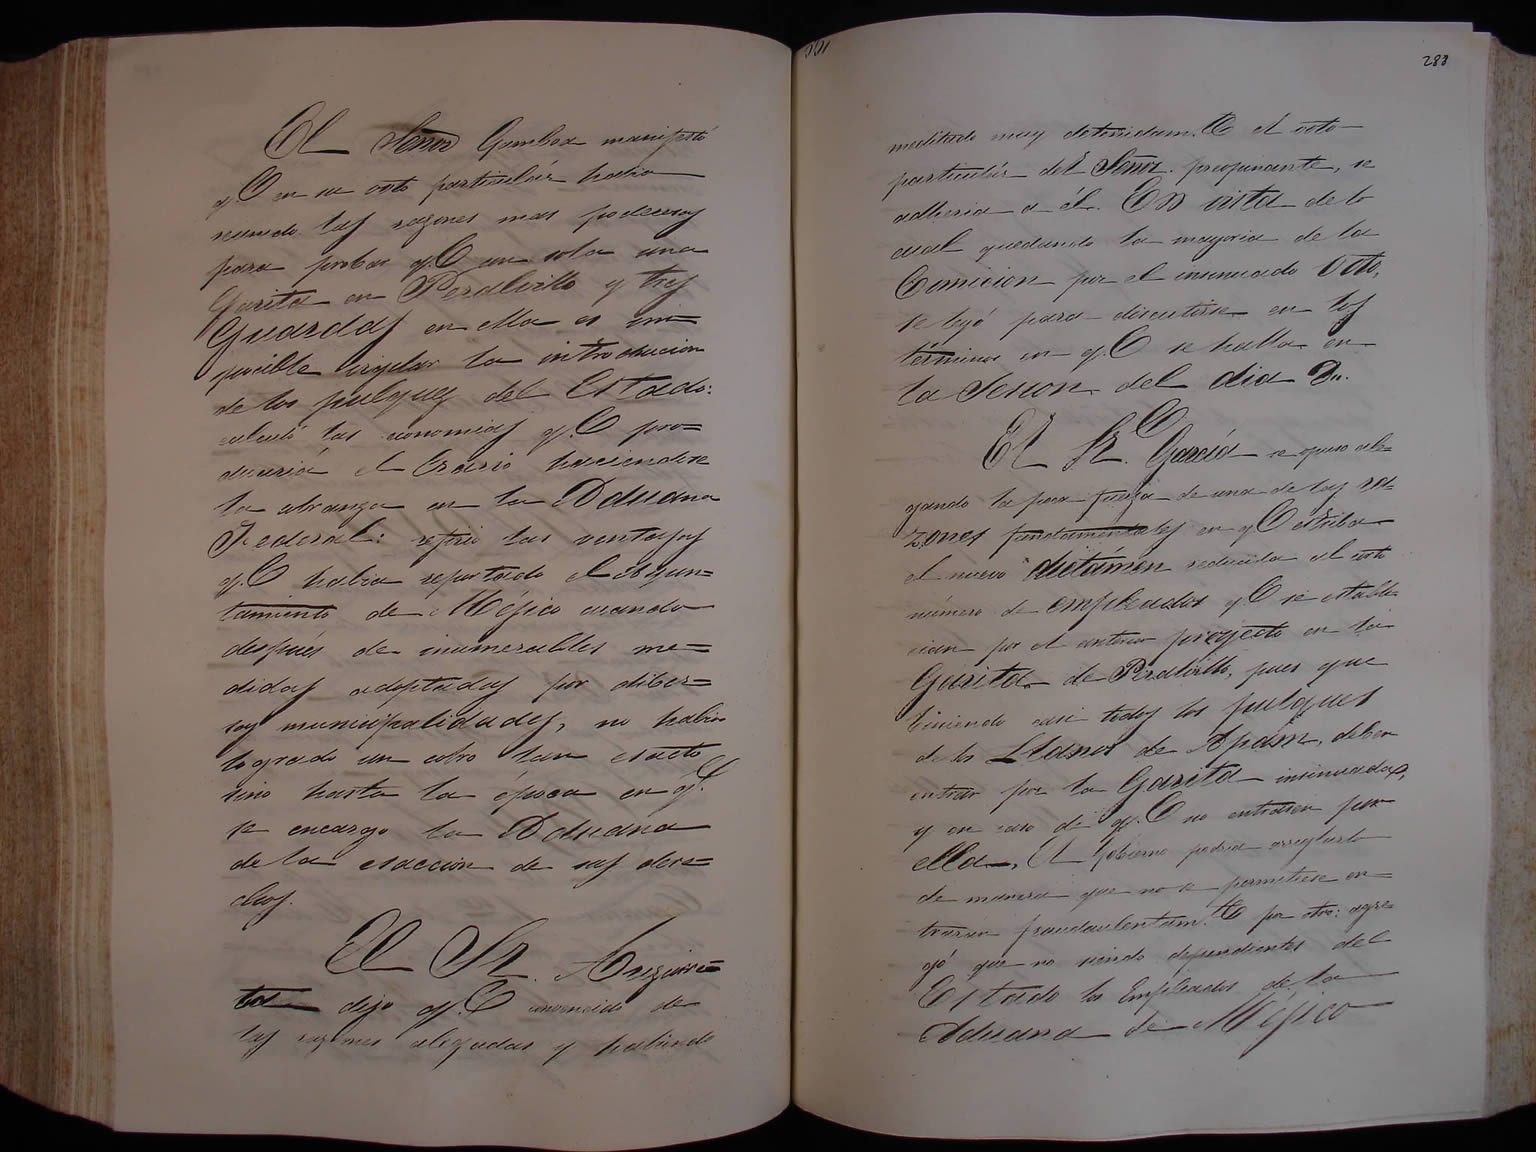 El Señor Gamboa manifestó
q.e en su voto particulár habia
reunido las razones mas poderosas
para probar q.e con sola una
Garita en Peralvillo y tres
Guardas en ella es im=
posible vigilar la introduccion
de los pulques del Estado:
calculó las economias q.e pro=
duciria el Erario haciendose
la cobranza en la Aduana
Federal: refirió las ventajas
q.e habia reportado el Ayun=
tamiento de Méjico cuando
despúes de inumerables me=
didas adoptadas por diber=
sas municipalidades, no habia
logrado un cobro tan esacto
sino hasta la época en q.e
se encargo la Aduana
de la esaccion de sus dere=
chos.
El Sr. Anizorre=
ta dijo q.e convencido de
las razones alegadas y habiendo
288
meditado muy detenidam.te el voto
particulár del Señor preopinante, se
adheria a él. En vista de lo
cual quedando la mayoria de la
Comicion por el insinuado Voto,
se leyó para discutirse en los
términos en q.e se halla en
la Sesion del dia 2..
El Sr. García se opuso ale=
gando la poca fuerza de una de las ra=
zones fundamentales en q.e estriba
el nuevo dictamen reducida al
número de empleados q.e se estable
cian por el anterior proyecto en la
Garita de Peralvillo, pues que
biniendo casi todos los pulques
de los Llanos de Apám, deben
entrar por la Garita insinuada,
y en caso de q.e no entrasen por
ella, El Gobierno podria arreglarlo
de manera que no se permitiese en=
trasen fraudulentam.te por otra: agre=
gó que no siendo dependientes del
Estado los Empleados de la
Aduana de Méjico